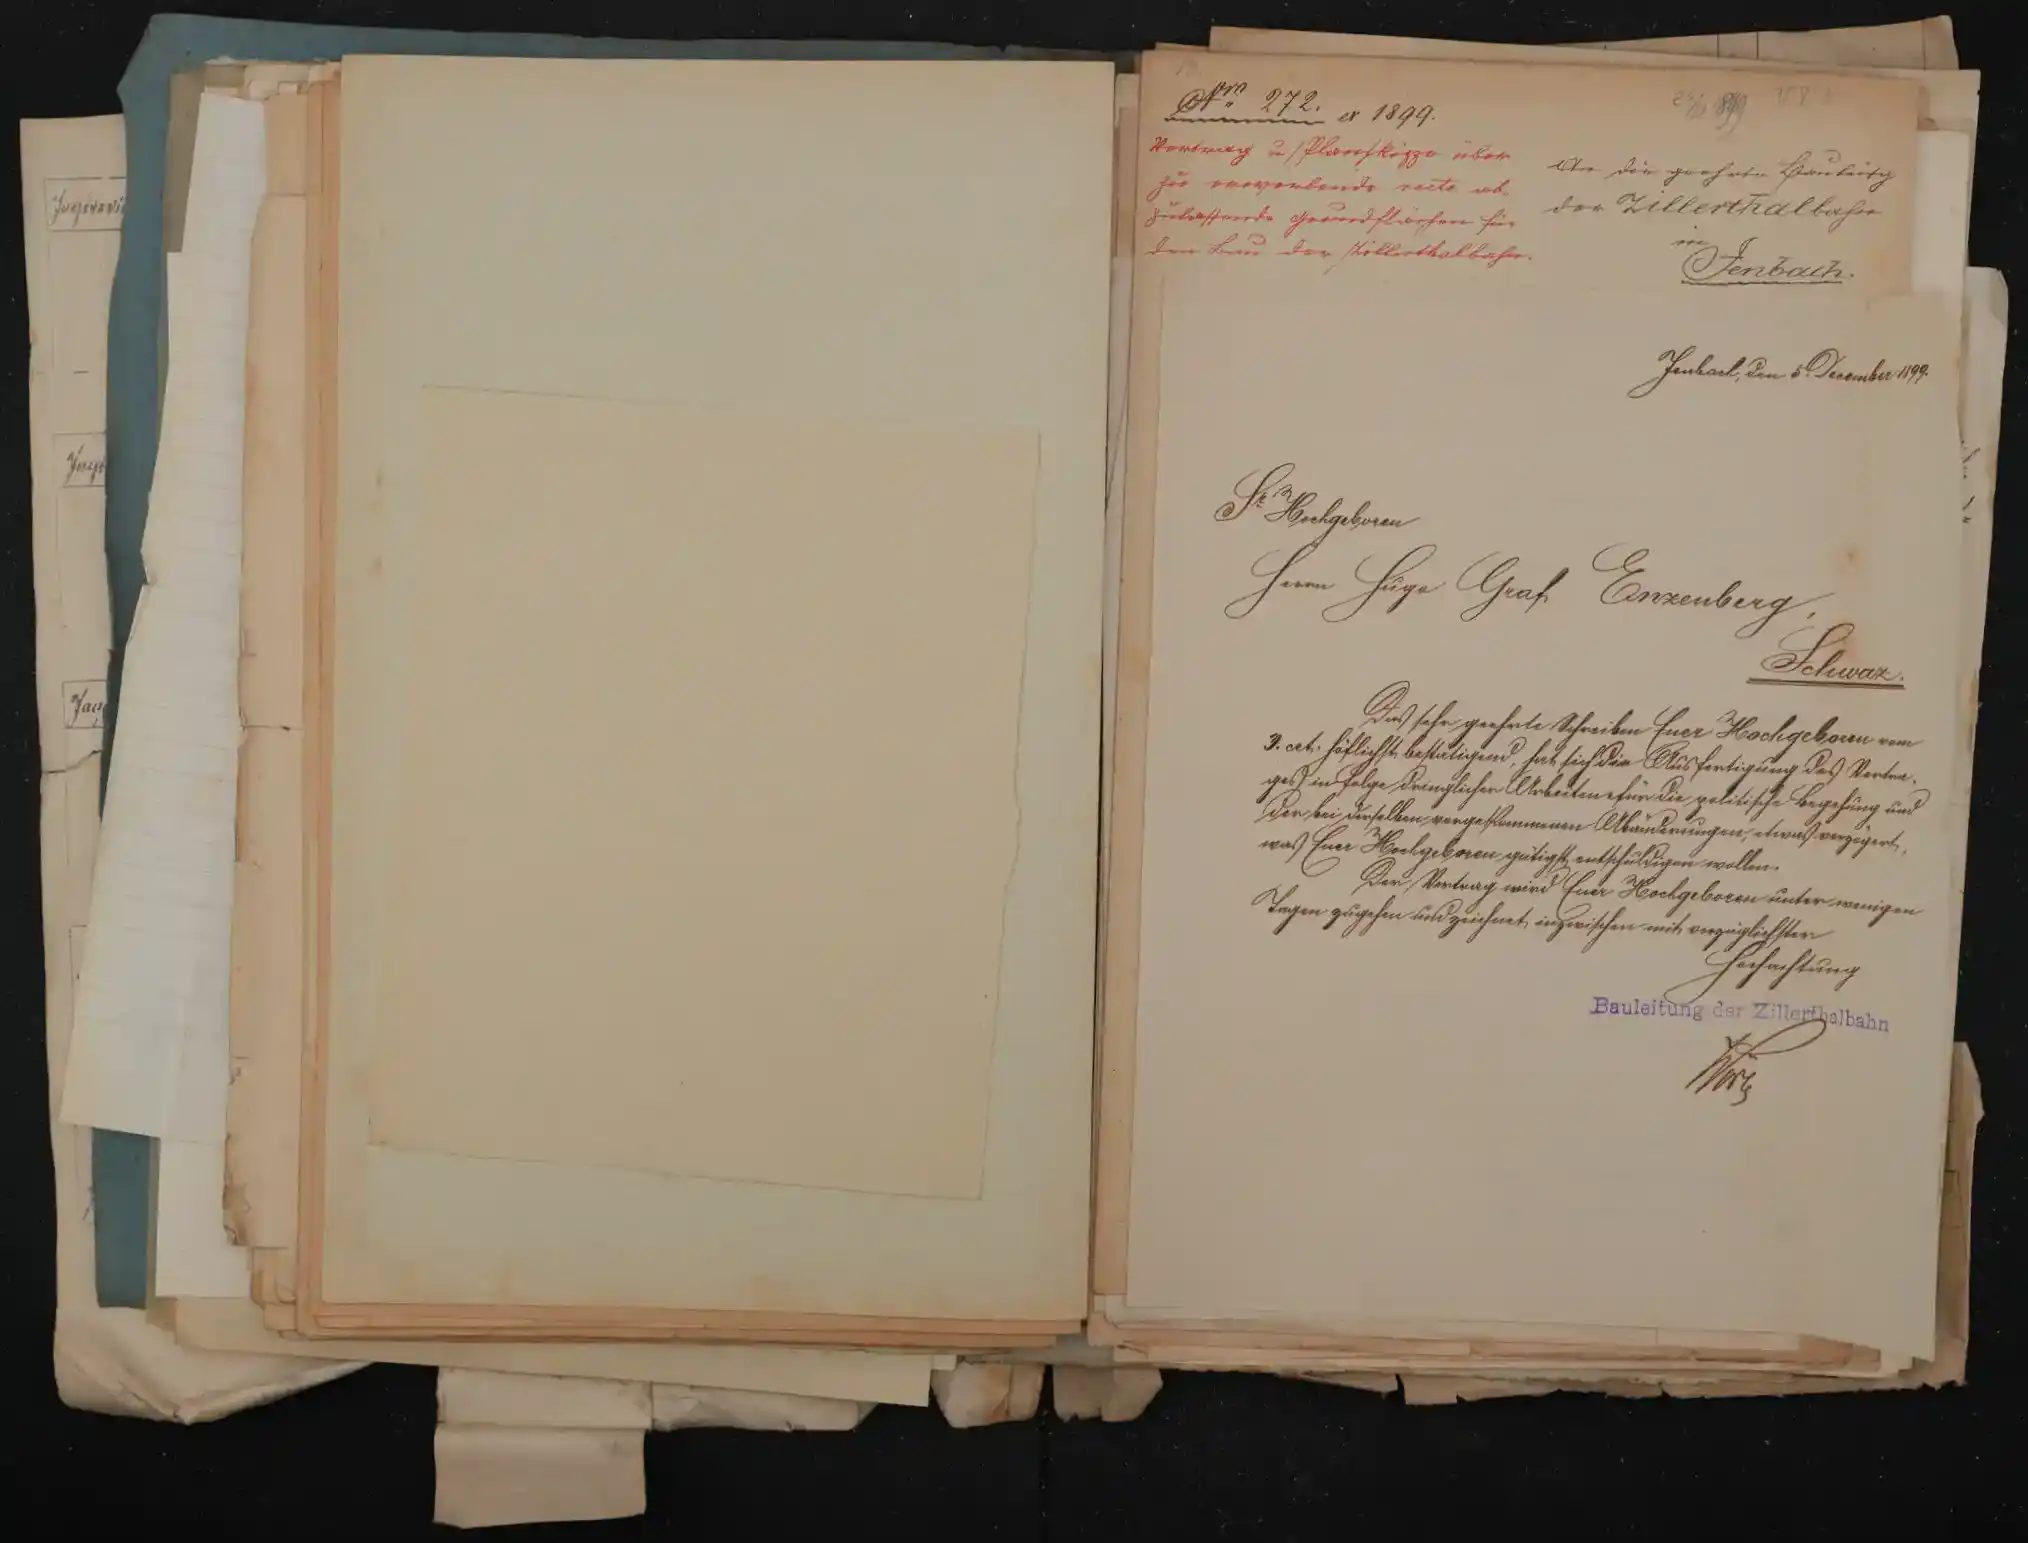 Nro 272. ex 1899.
Vertrag u. Planskizze über
zu erwerbende recte ab-
zulassende Grundflächen für
den Bau der Zillerthalbahn.
An die geehrte Bauleitg
der Zillerthalbahn
in
Jenbach.
Jenbach, den 5. December 1899.
Sr Hochgeboren
Herrn Hugo Graf Enzenberg,
Schwaz.
Das sehr geehrte Schreiben Euer Hochgeboren vom
3. crt. höflichst bestätigend, hat sich die Ausfertigung des Vertra-
ges in folge dringlicher Arbeiten für die politische Begehung und
der bei derselben vorgekommenen Abänderungen, etwas verzögert,
was Euer Hochgeboren gütigst entschuldigen wollen.
Der Vertrag wird Euer Hochgeboren unter wenigen
Tagen zugehen und zeichnet inzwischen mit vorzüglichster
Hochachtung
Bauleitung der Zillerthalbahn